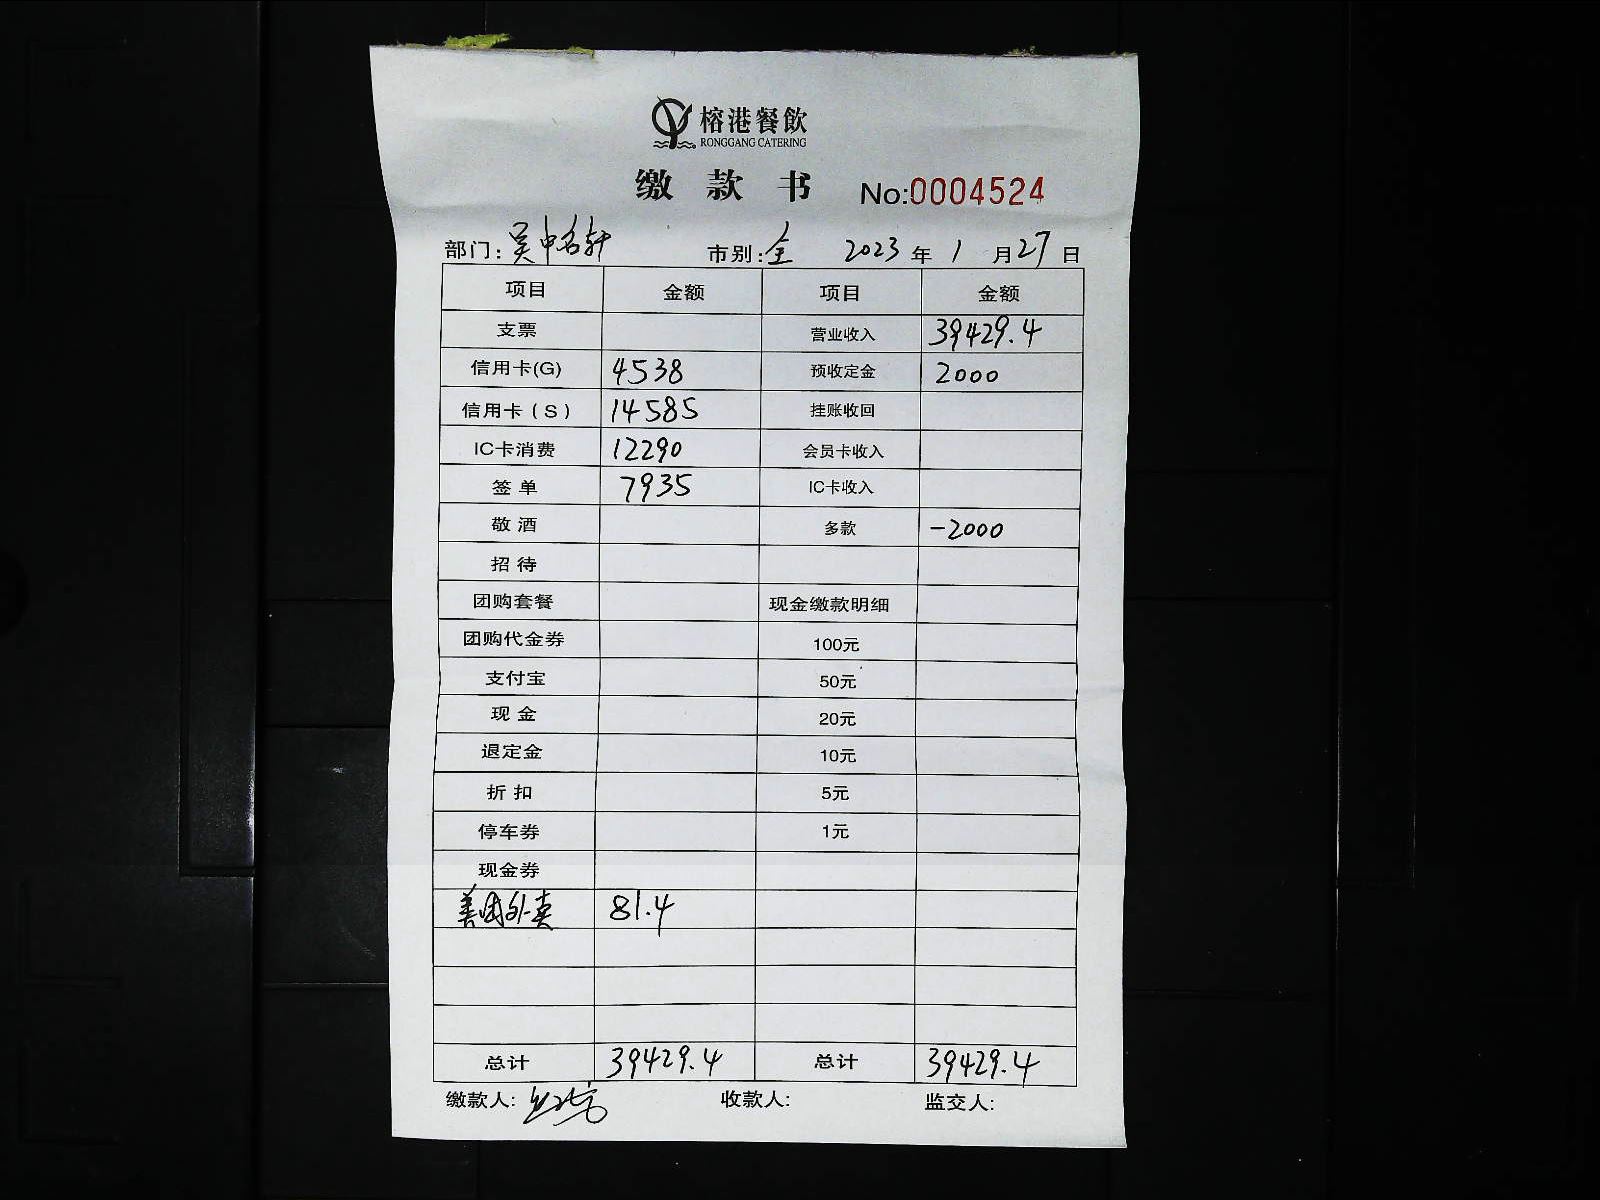 榕港餐飲
RONGGANG CATERING
缴款书 No:0004524
部门:吴中名轩 市别:全 2023年1月27日
项目 金额 项目 金额
支票 营业收入 39429.4
信用卡(G) 4538 预收定金 2000
信用卡(S) 14585 挂账收回
IC卡消费 12290 会员卡收入
签单 7935 IC卡收入
敬酒 多款 -2000
招待
团购套餐 现金缴款明细
团购代金券 100元
支付宝 50元
现金 20元
退定金 10元
折扣 5元
停车券 1元
现金券
美团外卖 81.4
总计 39429.4 总计 39429.4
缴款人: 收款人: 监交人: